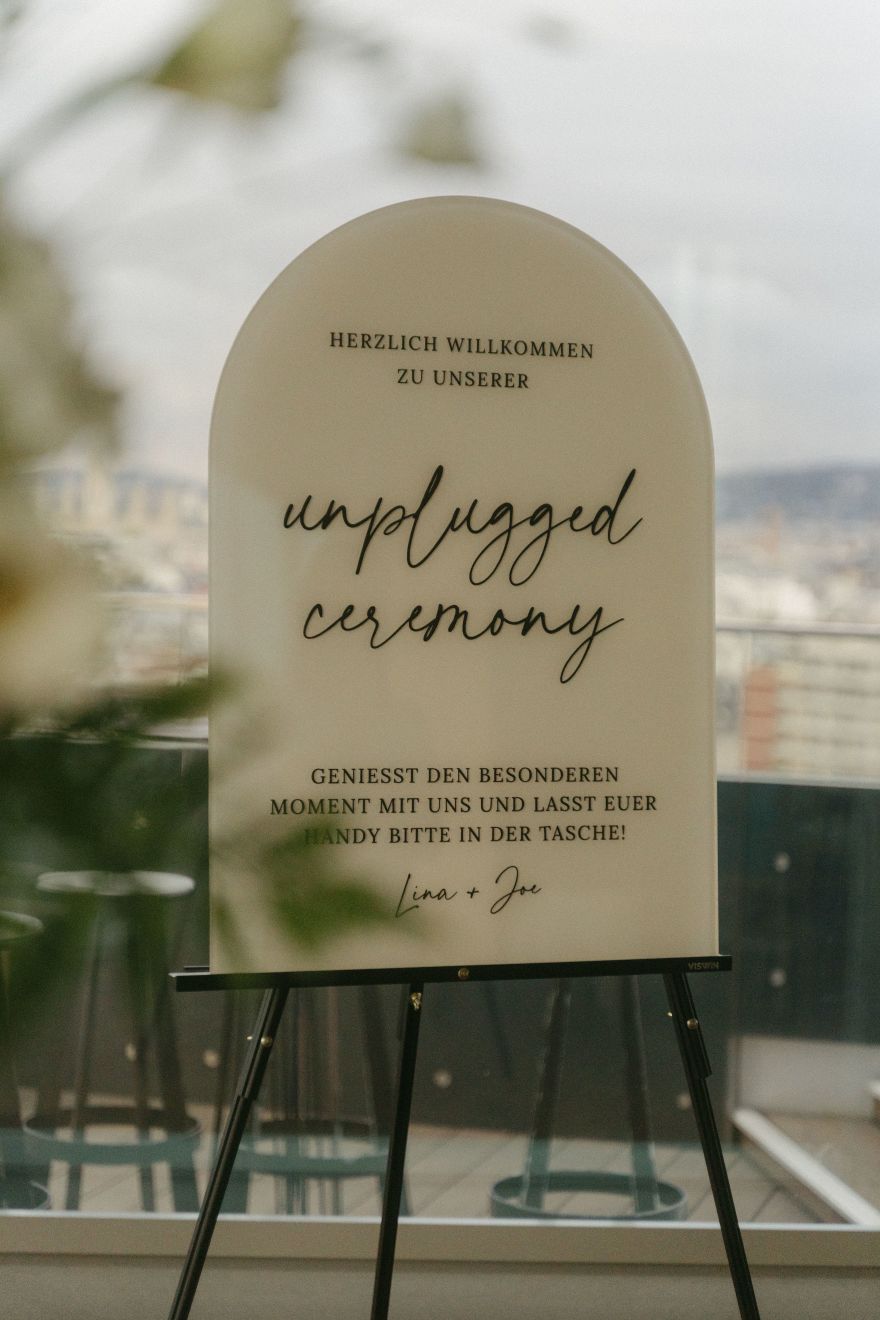 HERZLICH WILLKOMMEN
ZU UNSERER
unplugged
ceremony
GENIESST DEN BESONDEREN
MOMENT MIT UNS UND LASST EUER
HANDY BITTE IN DER TASCHE!
Lina + Joe
VISWIN